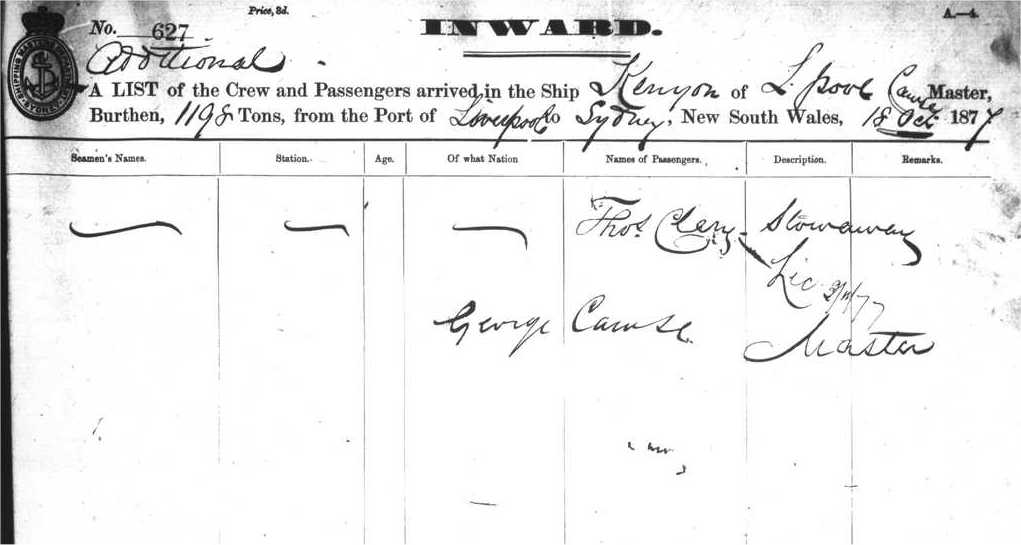 Price, 3d.
A.—4.
No. 627
INWARD.
Additional
SHIPPING MASTER'S SYDNEY
A LIST of the Crew and Passengers arrived in the Ship Kenyon of L.pool Master,
Burthen, 1198 Tons, from the Port of Liverpool to Sydney, New South Wales, 18 Oct 1877
Seamen's Names. Station. Age. Of what Nation Names of Passengers. Description. Remarks.
Thos. Clery Stowaway
Lic
George
Master